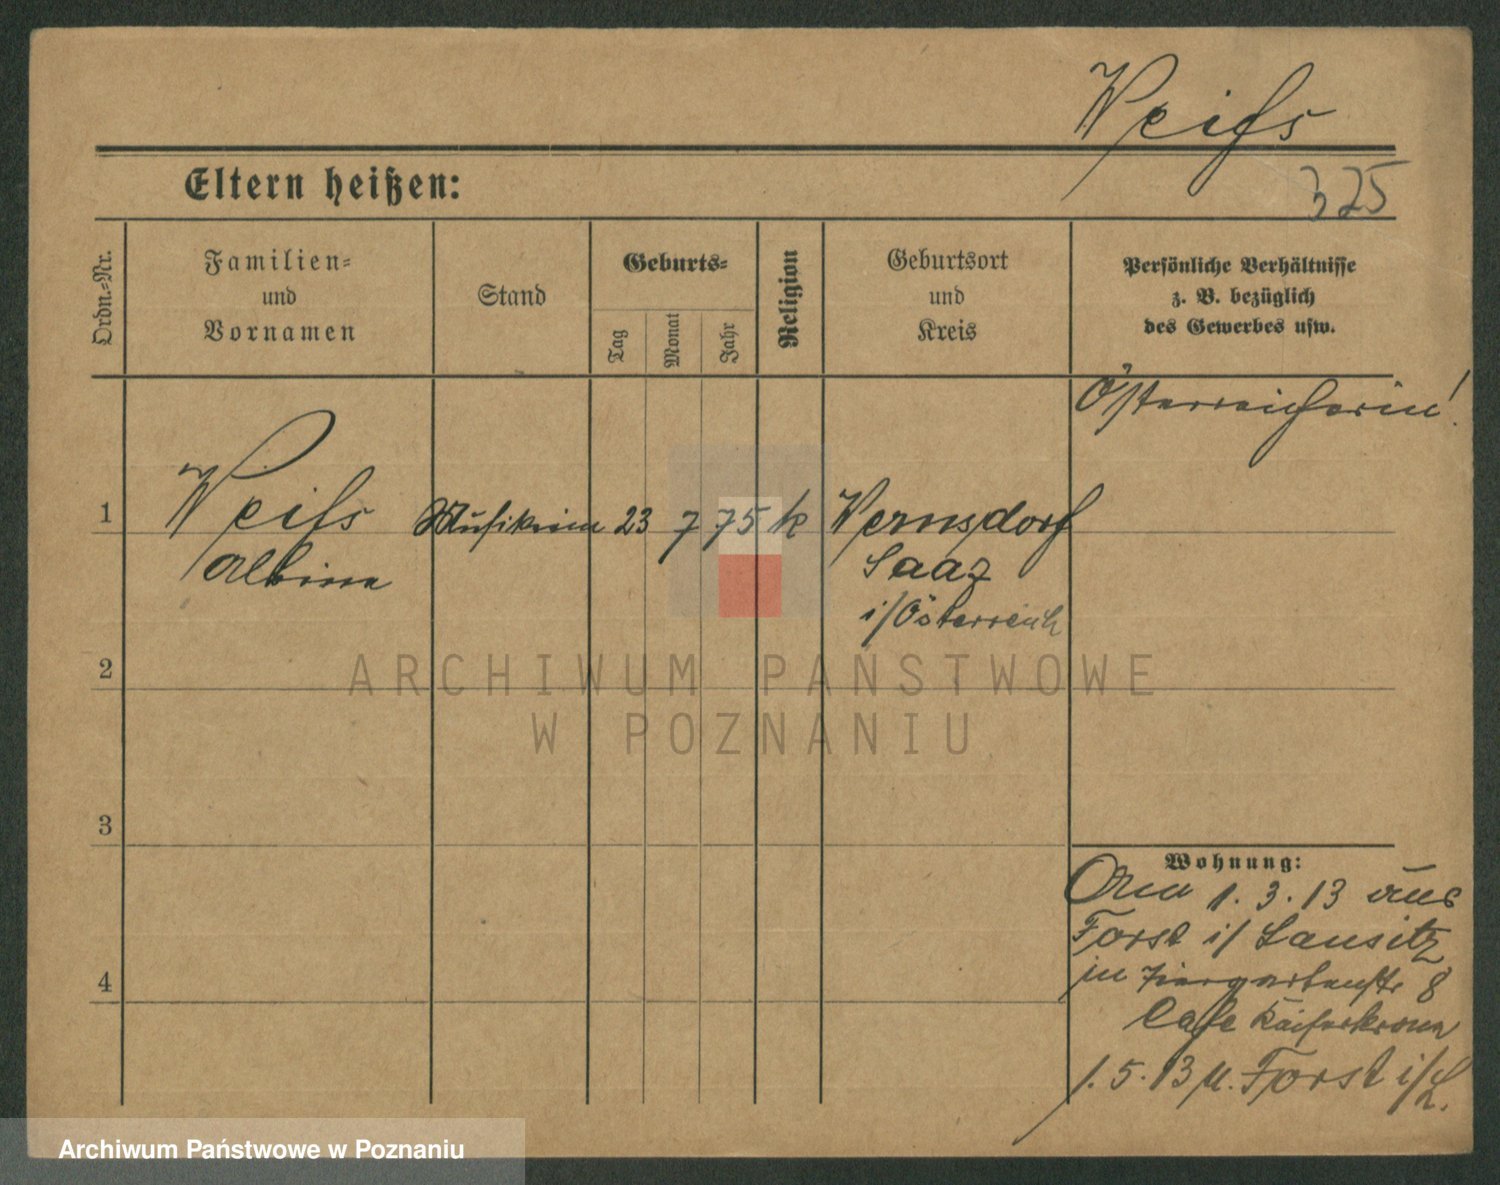 Weiſs
325
Eltern heißen:
Ordn.-Nr.
Familien-
und
Vornamen
Stand
Geburts-
Tag
Monat
Jahr
Religion
Geburtsort
und
Kreis
Persönliche Verhältnisse
z. B. bezüglich
des Gewerbes usw.
Österreicherin!
1 Weiſs Musikerin 23 7 75 k Wernsdorf
Albina Saaz
i/Österreich
2
ARCHIWUM PAŃSTWOWE
W POZNANIU
3
Wohnung:
1.3.13 aus
Forst i/ Lausitz
in Tiergartenstr 8
Cafe Kaiserkrone
1.5.13 n. Forst i/L.
4
Archiwum Państwowe w Poznaniu